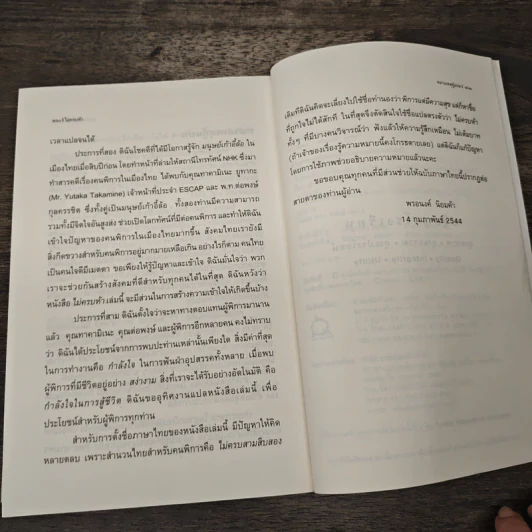 เวลาแปลจนได้
ประการที่สอง ดิฉันโชคดีที่ได้มีโอกาสรู้จัก มนุษย์เก้าอี้ล้อ ใน
เมืองไทยเมื่อสิบปีก่อน โดยทำหน้าที่ล่ามให้สถานีโทรทัศน์ NHK ซึ่งมา
ทำสารคดีเรื่องคนพิการในเมืองไทย ได้พบกับคุณทาคามิเนะ ยูทากะ
(Mr. Yutaka Takamine) เจ้าหน้าที่ประจำ ESCAP และ พ.ท.ต่อพงษ์
กุลครรชิต ซึ่งทั้งคู่เป็นมนุษย์เก้าอี้ล้อ ทั้งสองท่านมีความสามารถ
รวมทั้งมีจิตใจอันสูงส่ง ช่วยเปิดโลกทัศน์ที่มีต่อคนพิการ และทำให้ดิฉัน
เข้าใจปัญหาของคนพิการในเมืองไทยมากขึ้น สังคมไทยเรายังมี
สิ่งกีดขวางสำหรับคนพิการอยู่มากมายเหลือเกิน อย่างไรก็ตาม คนไทย
เป็นคนใจดีมีเมตตา ขอเพียงให้รู้ปัญหาและเข้าใจ ดิฉันมั่นใจว่า พวก
เราจะช่วยกันสร้างสังคมที่ดีสำหรับทุกคนได้ในที่สุด ดิฉันหวังว่า
หนังสือ ไม่ครบห้า เล่มนี้ จะมีส่วนในการสร้างความเข้าใจให้เกิดขึ้นบ้าง
ประการที่สาม ดิฉันตั้งใจว่าจะหาทางตอบแทนผู้พิการมานาน
แล้ว คุณทาคามิเนะ คุณต่อพงษ์ และผู้พิการอีกหลายคน คงไม่ทราบ
ว่า ดิฉันได้ประโยชน์จากการพบปะท่านเหล่านั้นเพียงใด สิ่งมีค่าที่สุด
ในการทำงานคือ กำลังใจ ในการฟันฝ่าอุปสรรคทั้งหลาย เมื่อพบ
ผู้พิการที่มีชีวิตอยู่อย่าง สง่างาม สิ่งที่เราจะได้รับอย่างอัตโนมัติ คือ
กำลังใจในการสู้ชีวิต ดิฉันขออุทิศงานแปลหนังสือเล่มนี้ เพื่อ
ประโยชน์สำหรับผู้พิการทุกท่าน
สำหรับการตั้งชื่อภาษาไทยของหนังสือเล่มนี้ มีปัญหาให้คิด
หลายตลบ เพราะสำนวนไทยสำหรับคนพิการคือ ไม่ครบสามสิบสอง
เดิมทีดิฉันคิดจะเลี่ยงไปใช้ชื่อทำนองว่า พิการแต่มีความสุข แต่ก็หาชื่อ
ที่ถูกใจไม่ได้สักที ในที่สุดจึงตัดสินใจใช้ชื่อแปลตรงตัวว่า ไม่ครบห้า
ทั้งๆ ที่มีบางคนวิจารณ์ว่า ฟังแล้วให้ความรู้สึกเหมือน ไม่เต็มบาท
(ถ้าเจ้าของเรื่องรู้ความหมายนี้คงโกรธตายเลย) แต่ดิฉันก็แก้ปัญหา
โดยการใช้ภาพช่วยอธิบายความหมายแล้วนะคะ
ขอขอบคุณทุกคนที่มีส่วนช่วยให้ฉบับภาษาไทยนี้ปรากฏต่อ
สายตาของท่านผู้อ่าน
พรอนงค์ นิยมค้า
14 กุมภาพันธ์ 2544